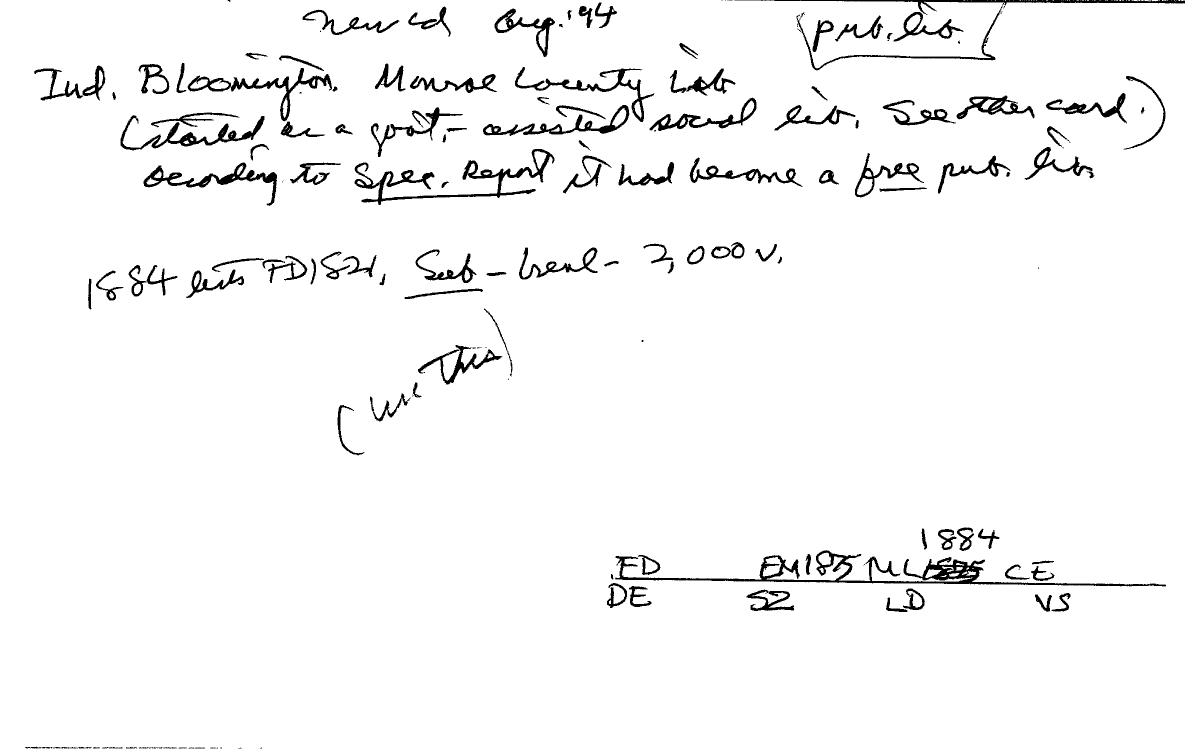 new cd Aug. '94 pub. lib.
Ind. Bloomington. Monroe County Lib
(started as a govt.-assisted social lib. See other card.)
According to Spec. Report it had become a free pub. lib.
1884 lists FD1821, Sub - - 2,000 v.
(use this)
1884
FD EM1875 ML CE
DE SZ LD VS